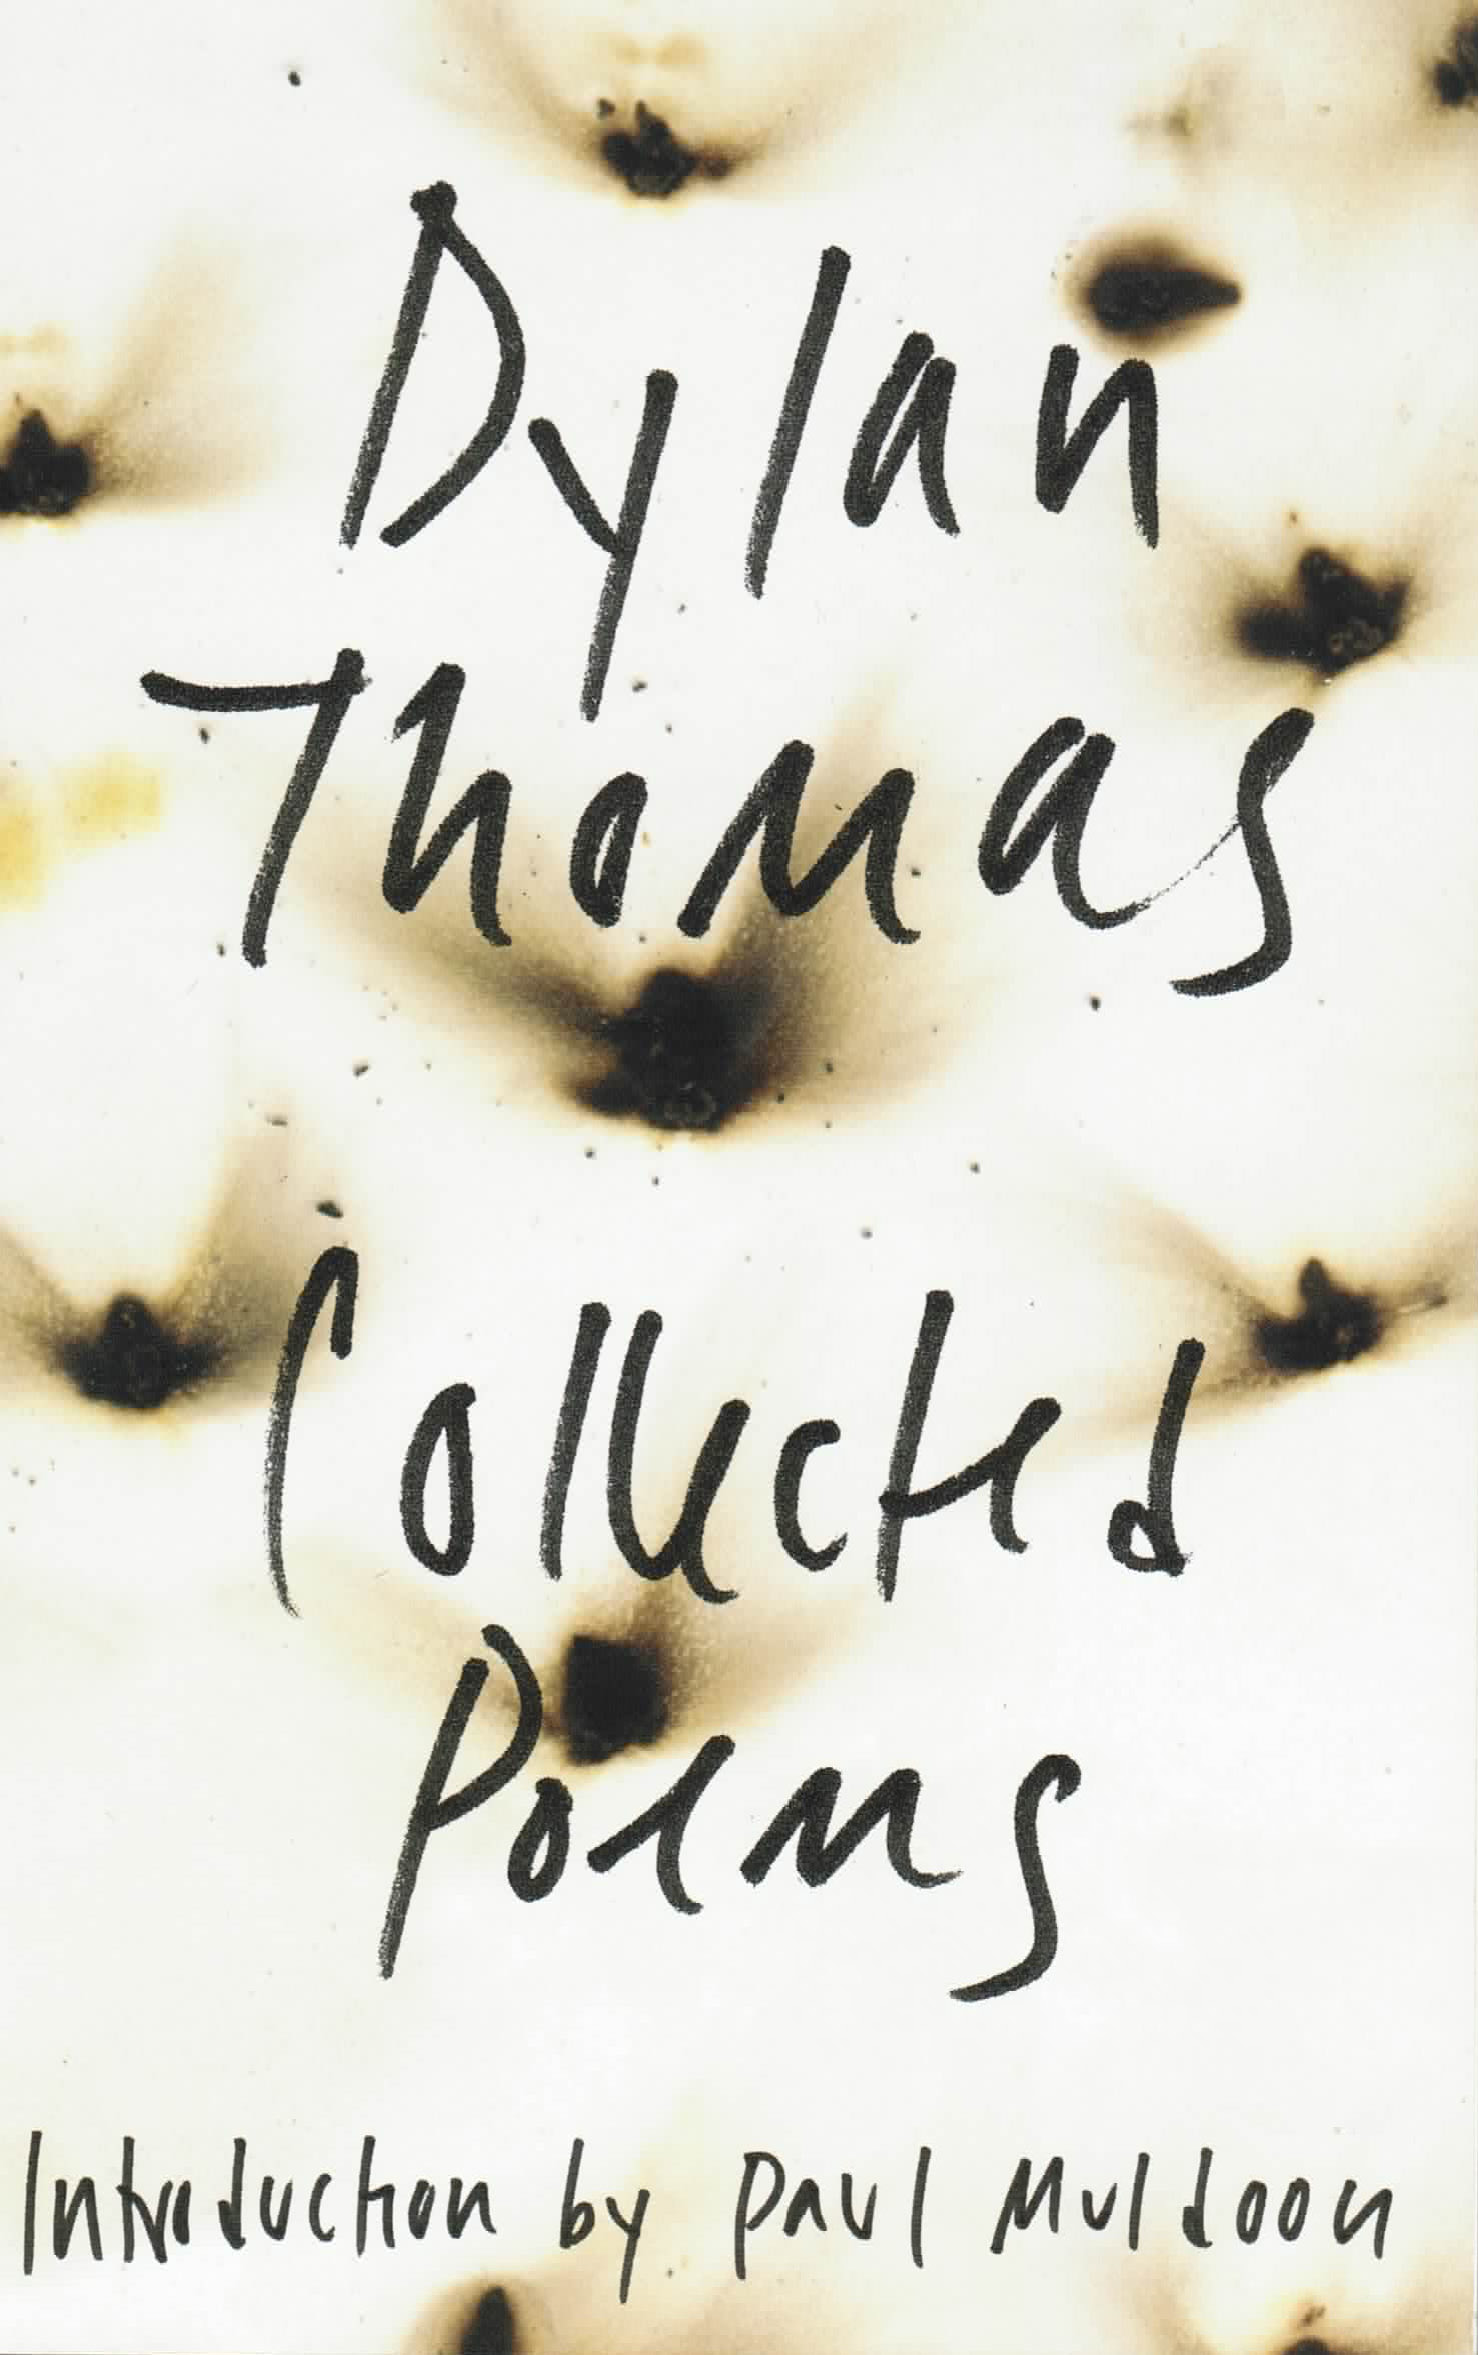 Dylan
Thomas
Collected
Poems
Introduction by Paul Muldoon